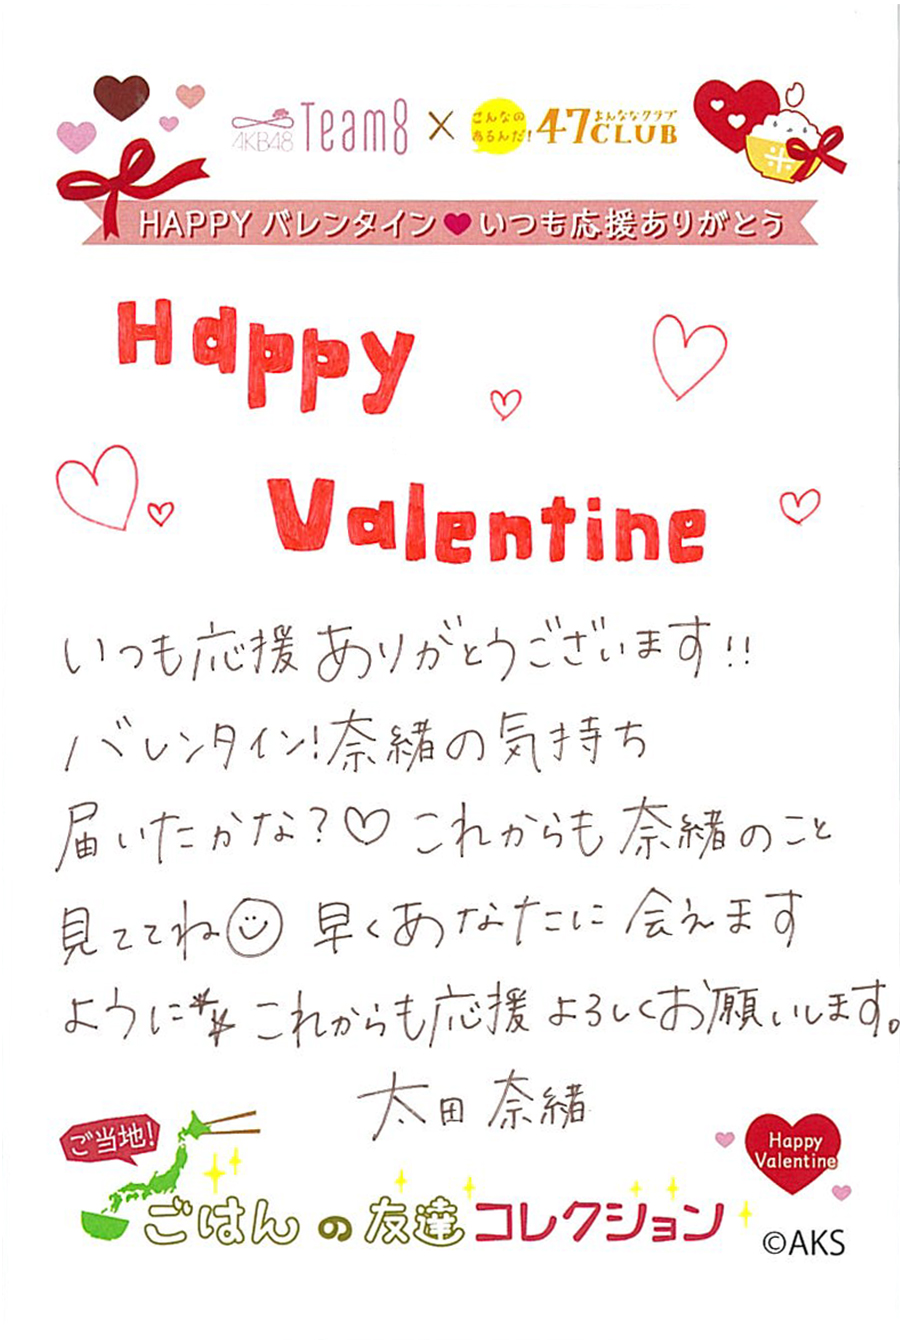 AKB48 Team8 × こんなのあるんだ! 47CLUB よんななクラブ
HAPPY バレンタイン♥いつも応援ありがとう
Happy
Valentine
いつも応援ありがとうございます!!
バレンタイン!奈緒の気持ち
届いたかな?♡これからも奈緒のこと
見ててね☺ 早くあなたに会えます
ように** これからも応援よろしくお願いします。
太田 奈緒
ご当地!
ごはんの友達コレクション
Happy
Valentine
©AKS